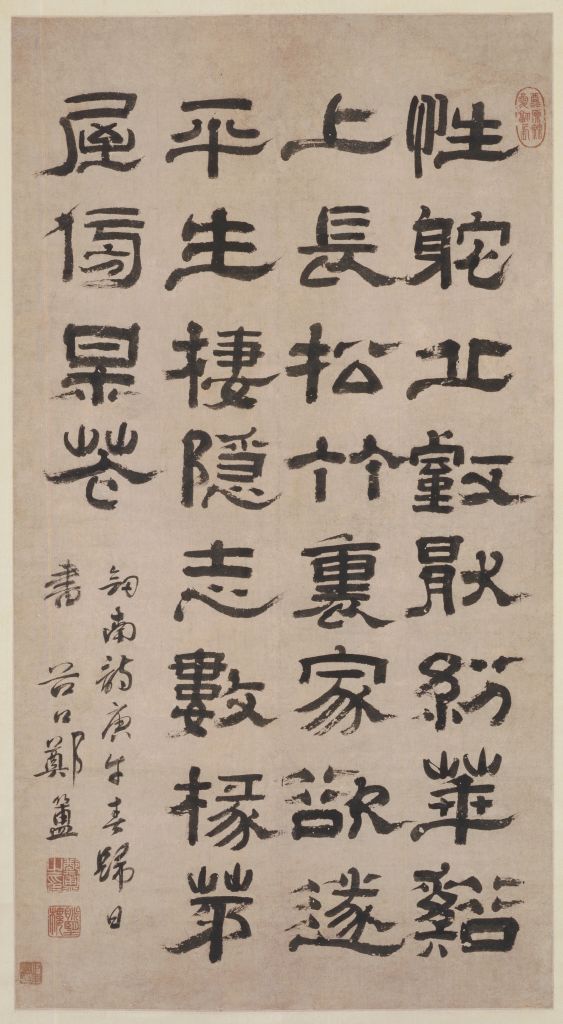 性躭丘壑厭紛華谿
上長松竹裏家欲遂
平生棲隱志數椽茅
屋傍呆花
劔南詩庚午春歸日
書 谷口鄭簠